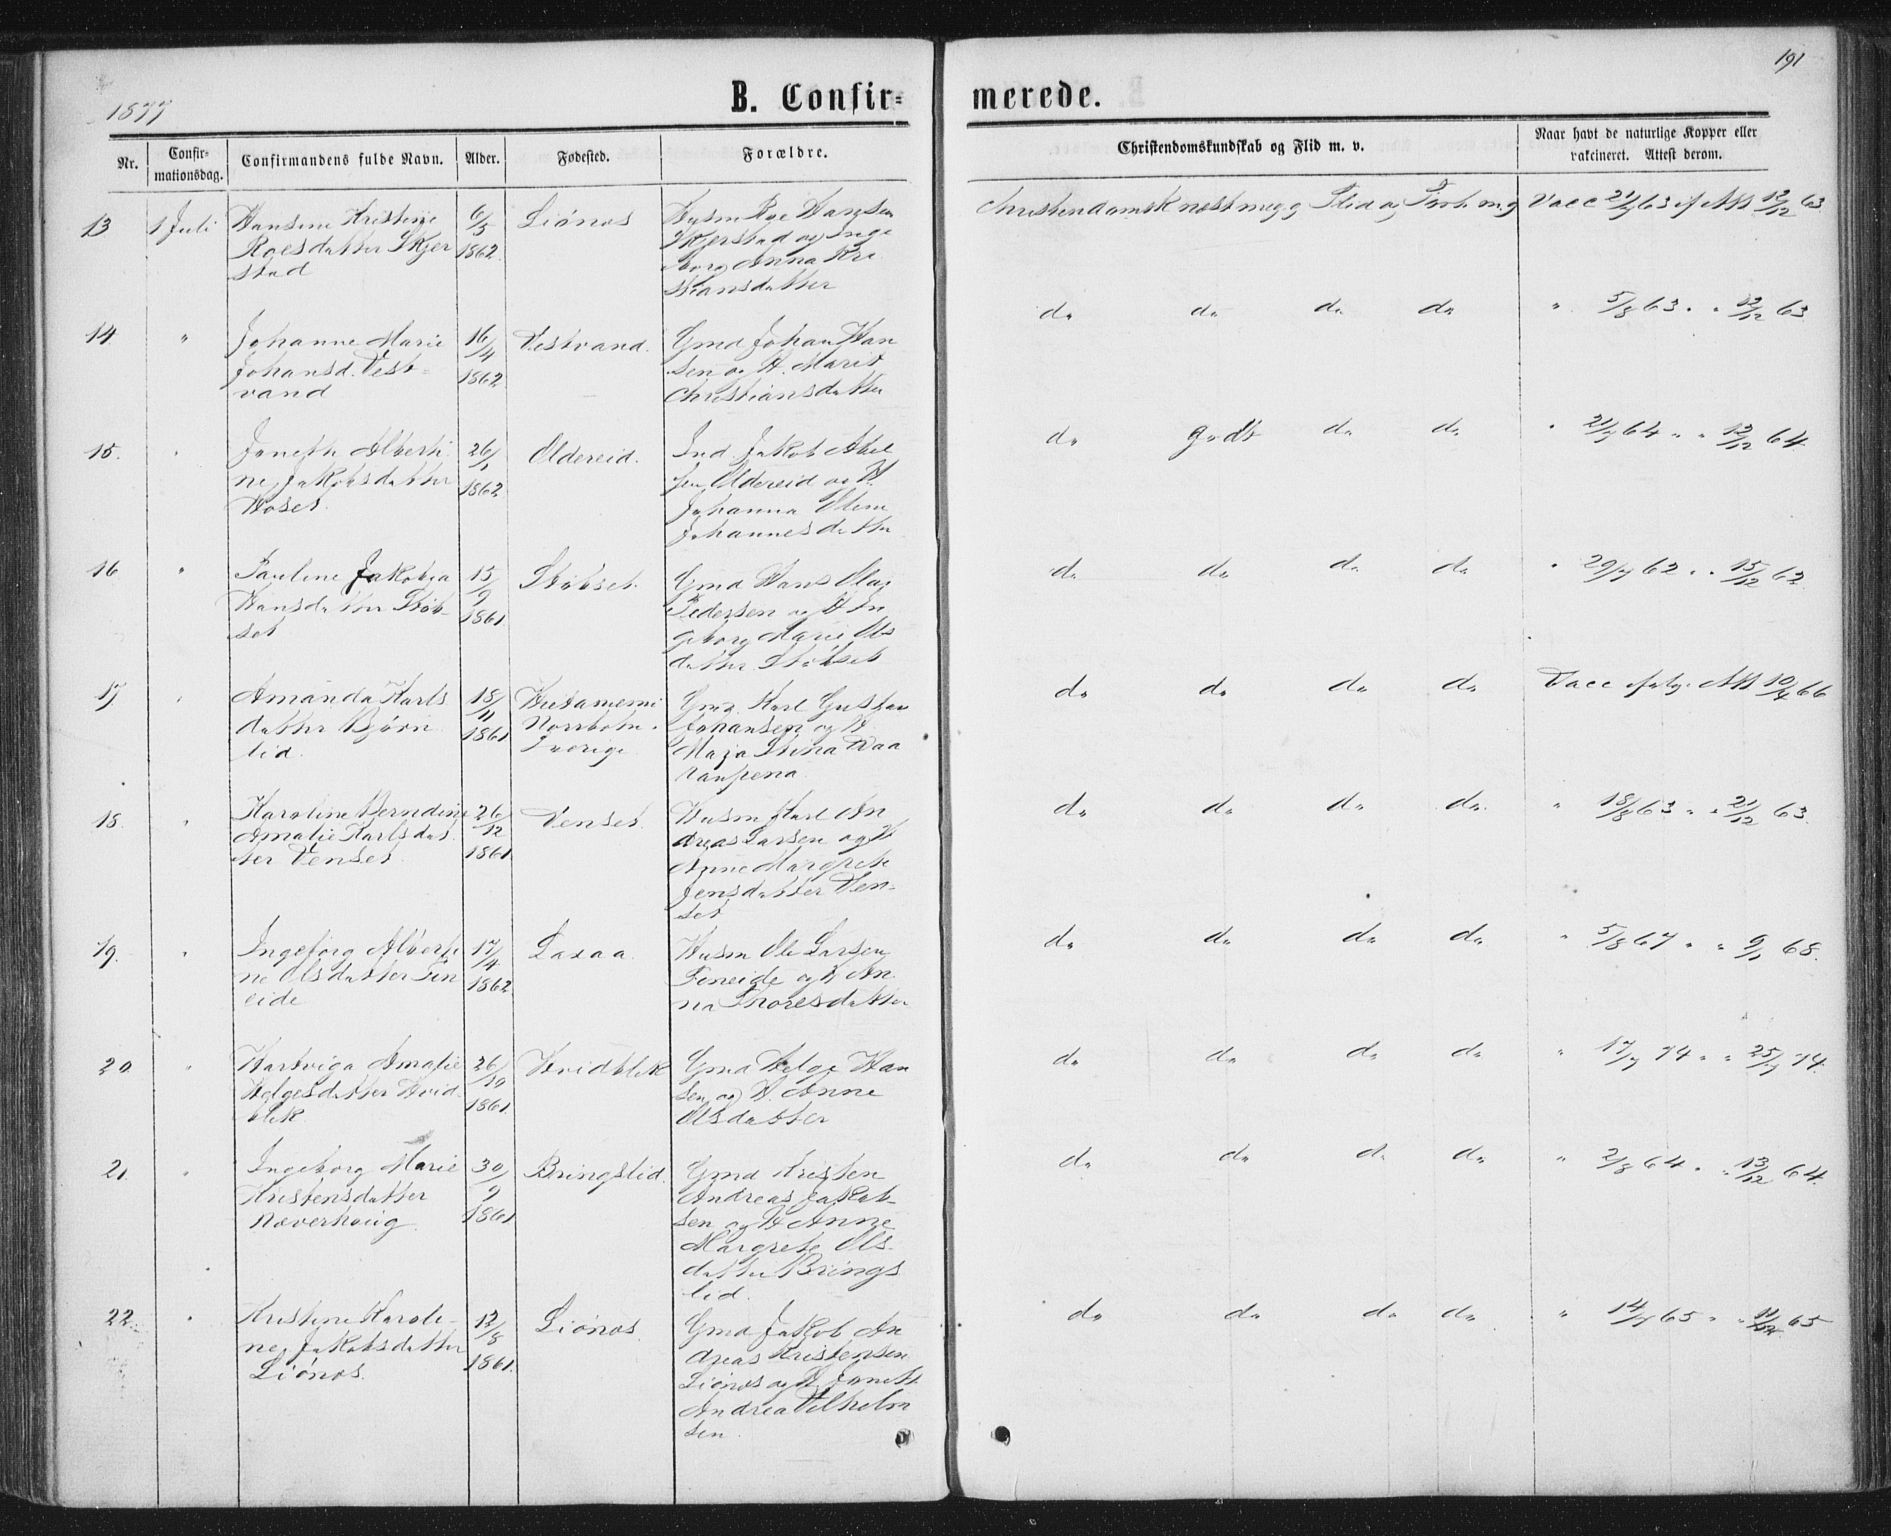 191
1877
B. Confir=
merede.
Nr.
Confir-
mationsdag.
Confirmandens fulde Navn.
Alder.
Fødested.
Forældre.
Christendomskundskab og Flid m. v.
Naar havt de naturlige Kopper eller
vakcineret. Attest derom.
13
1 Juli
Hansine Kristine
Roesdatter Skjer
stad
6/5
1862
Liønæs
Husm Roe Hansen
Skjerstad og Inge
borg Anna Kri
stiansdatter
Christendomsk næst meg g Flid og Forh m.g
Vacc 21/7 63 if Att 12/12 63
14
"
Johanne Marie
Johansd. Vest-
vand
16/4
1862
Vestvand.
Gmd Johan Han
sen og H. Marit
Christiansdatter
do do do do
" 5/8 63 " " 12/12 63
15.
"
Jonetha Alberti
ne Jakobsdatter
Hoset
26/1
1862
Oldereid.
Ind. Jakob Abel
sen Oldereid og H
Johanna Oline
Johannesdatter
do godt do do
" 21/7 64 " " 12/12 64.
16
"
Pauline Jakobea
Hansdatter Støb-
set
15/9
1861
Støbset
Gmd Hans Olai
Pedersen og H In
geborg Marie Ols
datter Støbset
do do do do
" 29/7 62 " " 15/12 62
17
"
Amanda Karls
datter Bjørn
lid.
18/11
1861
Norrbotn
Sverige
Gmd. Karl Gustav
Johansen og H.
Maja Stina
do do do do
Vacc ifølge Att 10/4 66
18.
"
Karoline Berndine
Amalie Karlsdat
ter Venset
26/12
1861
Venset
Husm Karl An
dreas Larsen og H
Anne Margrete
Jensdatter Ven-
set
do do do do
" 18/8 63 " " 21/12 63.
19.
"
Ingeborg Alberti
ne Olsdatter Fin
eide
17/4
1862
Laxaa
Husm Ole Larsen
Feneide og H An
na Thoresdatter
do do do do
" 5/8 67 " " 9/1 68.
20
"
Hartviga Amalie
Helgesdatter Hvid
blik
26/10
1861
Hvidblik
Gmd Helge Han
sen og H. Anne
Olsdatter
do do do do
" 17/7 74 " " 25/7 74.
21
"
Ingeborg Marie
Kristensdatter
Næverhaug
30/9
1861
Bringslid.
Gmd Kristen
Andreas Jakob-
sen og H Anne
Margrete Ols
datter Brings
lid.
do do do do
" 2/8 64 " " 13/12 64.
22
"
Kristine Karoli-
ne Jakobsdatter
Liønæs.
12/8
1861.
Liønæs
Gmd Jakob An
dreas Kristensen
Liønæs og H Jonetta
Andrea Vilhelm
sen
do do do do
" 14/7 65 " " 11/12 65